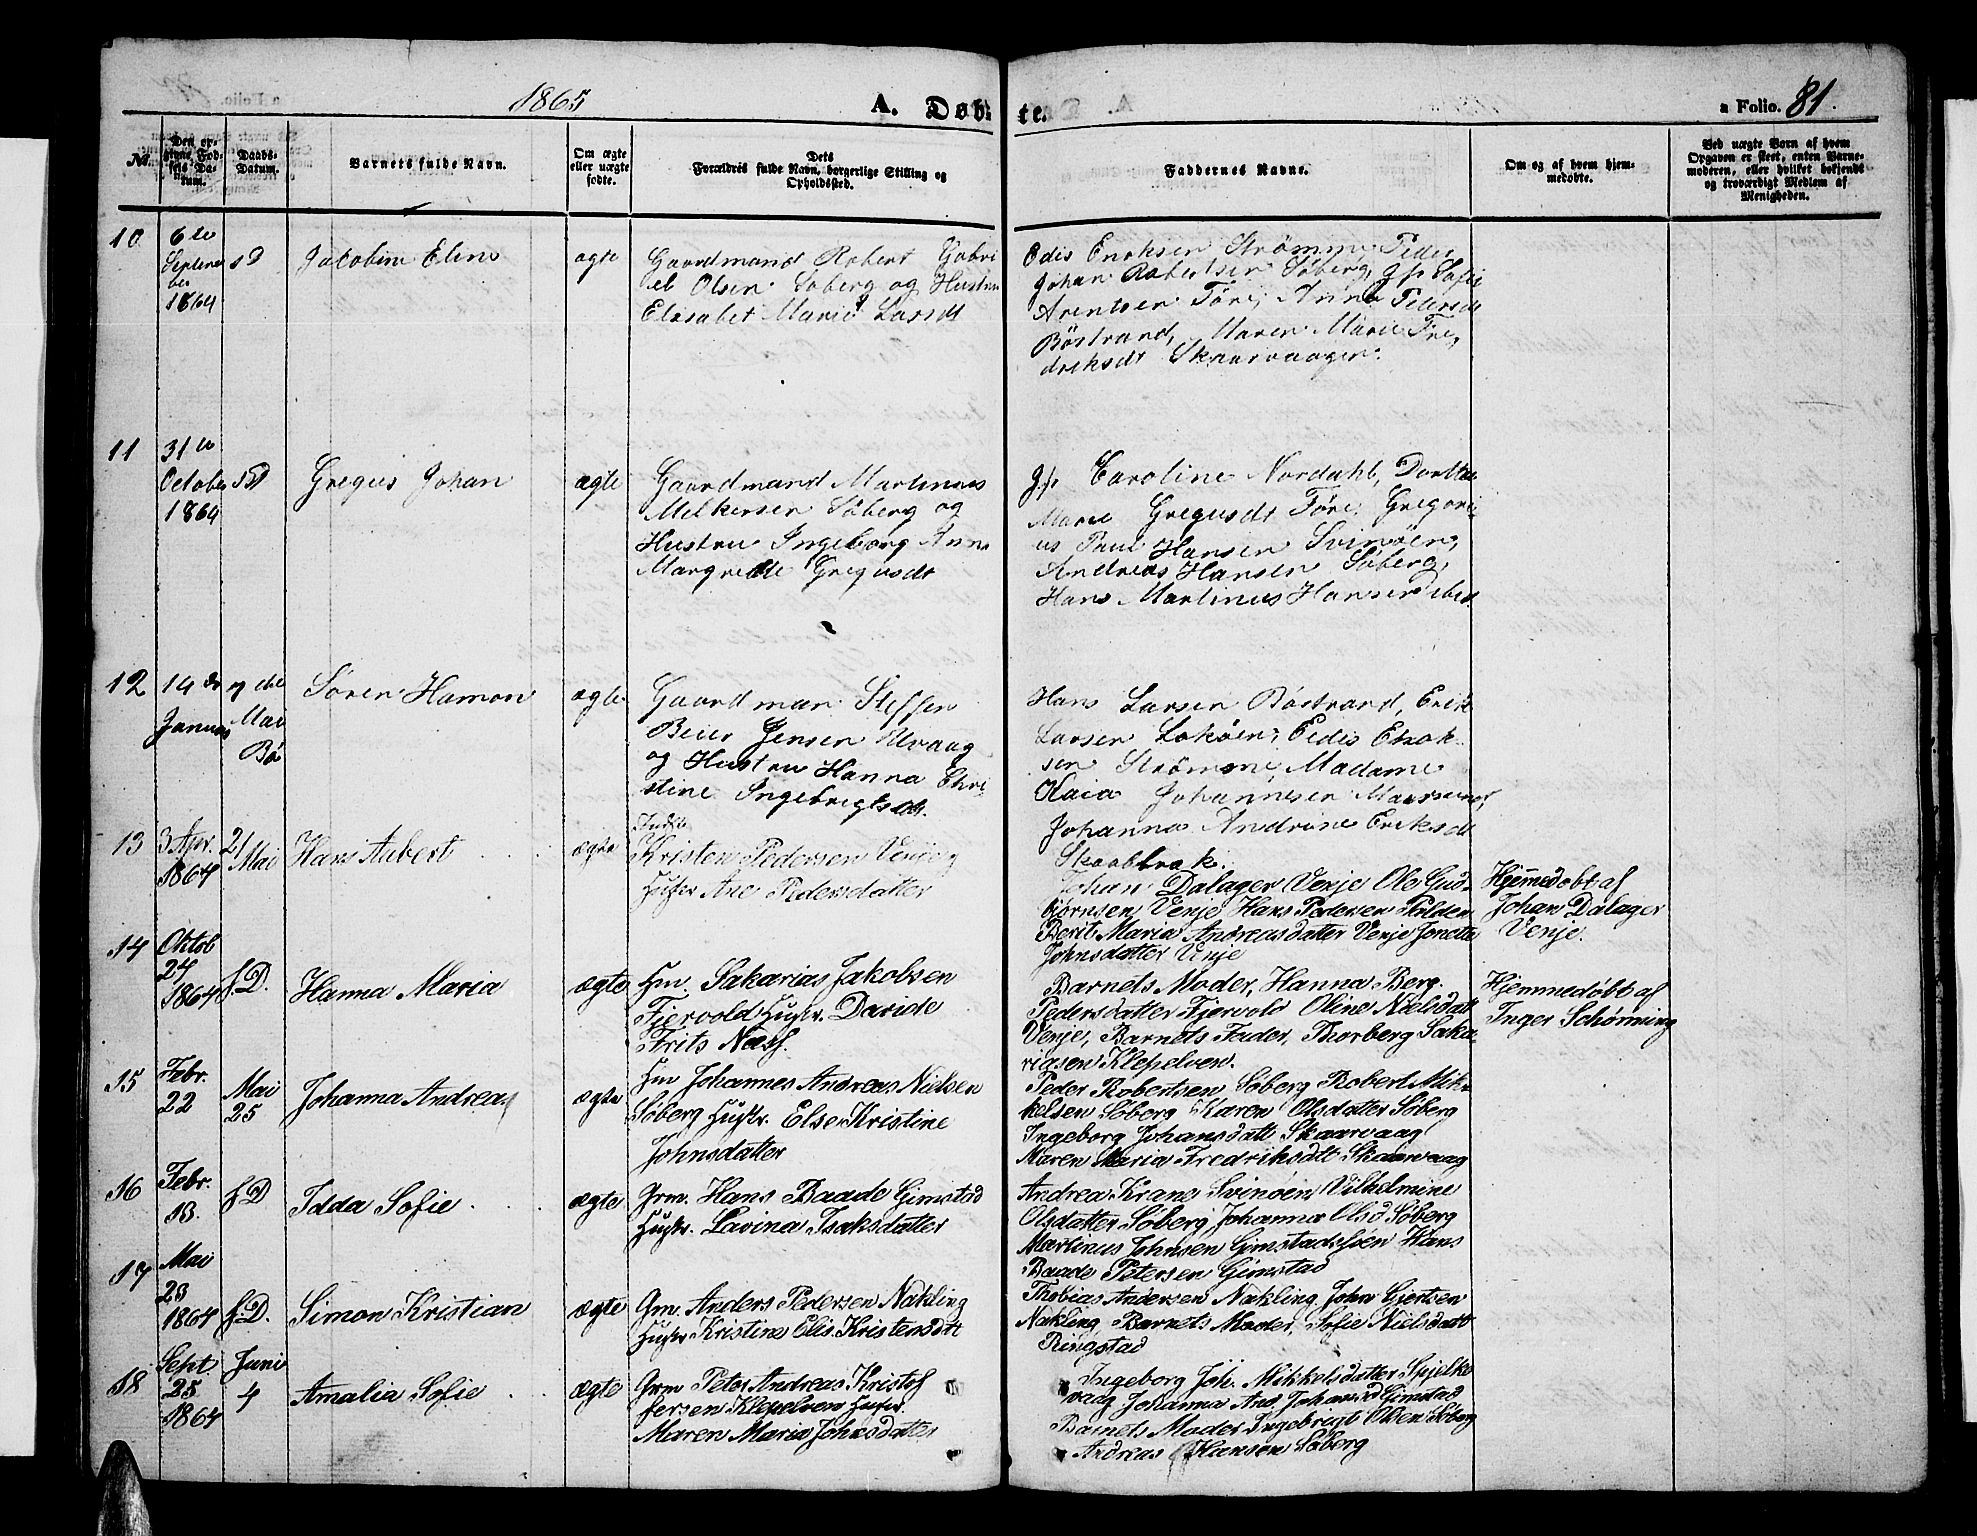 1865 A. Døbte. a Folio. 81.
No. Den opgivne Fødsels Datum. Daabs-Datum. Barnets fulde Navn. Om ægte eller uægte fødte. Dets Forældres fulde Navn, borgerlige Stilling og Opholdssted. Faddernes Navne. Om og af hvem hjemmedøbte. Ved uægte Børn af hvem Opgaven er skeet, enten Barnemoderen, eller hvilket bekjendt og troværdigt Medlem af Menigheden.
10 6te September 1864 s D Jacobine Elene ægte
Gaardmand Robert Gabri
el Olsen Søberg og Hustru
Elisabet Marie Larsdt
Edis Enoksen Strømme, Peder
Johan Robertsen Søberg, gp Sofie
Arentsen Føre, Anna Pedersdt
Bøstrand, Maren Marie Fre,
driksdt Skaarvaagen.
11 31te October 1864 s D Gregus Johan ægte
Gaardmand Martinus
Melkersen Søberg og
Hustru Ingeborg Anna
Margrethe Gregusdt
gp Caroline Nordahl, Dorthea
Marie Gregusdt Føre, Gregori
us Paul Hansen Svinøen,
Andreas Hansen Søberg,
Hans Martinus Hansen ibid
12 14de Januar 2den Mai Bø Søren Hamon ægte
Gaardman Steffen
Beier Jensen Uvaag
og Hustru Hanna Chri
stine Ingebrigtsdt.
Hans Larsen Bøstrand, Erik
Larsen Lokøen, Eedis Enok-
sen Strømme, Madame
Kaia Johannesen Maarsund,
Johanna Andrine Eriksdt
Skaabrak.
13 3 Apr. 1864 21 Mai Hans Aubert ægte
Inds.
Kristen Pedersen Venje
Hustr Ane Pedersdatter
Johan Dalager Venje Ole Gud-
bjørnsen Venje Hans Pedersen Polden
Berit Maria Andreasdatter Venje Jonetta
Johnsdatter Venje
Hjemmedøbt af
Johan Dalager
Venje.
14 Oktob 24 1864 f.D. Hanna Maria ægte
Hm. Sakarias Jakobsen
Fjervold Hustr. Davide
Frits Næss.
Barnets Moder, Hanna Berg.
Pedersdatter Fjervold Oline Nielsdatt
Venje, Barnets Fader, Thorberg Saka-
riasen Klepelven.
Hjemmedøbt af
Inger Schørning
15 Febr. 22 Mai 25 Johanna Andrea ægte
Hm Johannes Andreas Nielsen
Søberg Hustr. Else Kristine
Johnsdatter
Peder Robertsen Søberg Robert Mik-
kelsen Søberg Karen Olsdatter Søberg
Ingeborg Johansdatt Skaarvaag
Maren Maria Fredriksdtt Skaarvaag
16 Febr. 13. f D Idda Sofie ægte
Grm. Hans Baade Gimstad
Hustr. Lavina Isaksdatter
Andrea Krane Svinøen, Vilhelmine
Olsdatter Søberg Johanna Olsd Søberg
Martinus Johnsen Gimstadsjøen Hans
Baade Petersen Gimstad
17 Mai 23 1864 f.D. Simon Kristian ægte
Grm. Anders Pedersen Nøkling
Hustr Kristine Elis. Kristensdtt
Thobias Andersen Nøkling, John Gjertsen
Nøkling, Barnets Moder, Sofie Nielsdatt
Ringstad
18 Sept 25 1864 Juni 4 Amalia Sofie ægte
Grm Peter Andreas Kristof
fersen Klepelven Hustr.
Maren Maria Johnsdatter
Ingeborg Joh. Mikkelsdatter Spjelke
vaag Johanna And. Johansd Gimstad
Barnets Moder Ingebrigt Olsen Søberg
Andreas Hansen Søberg